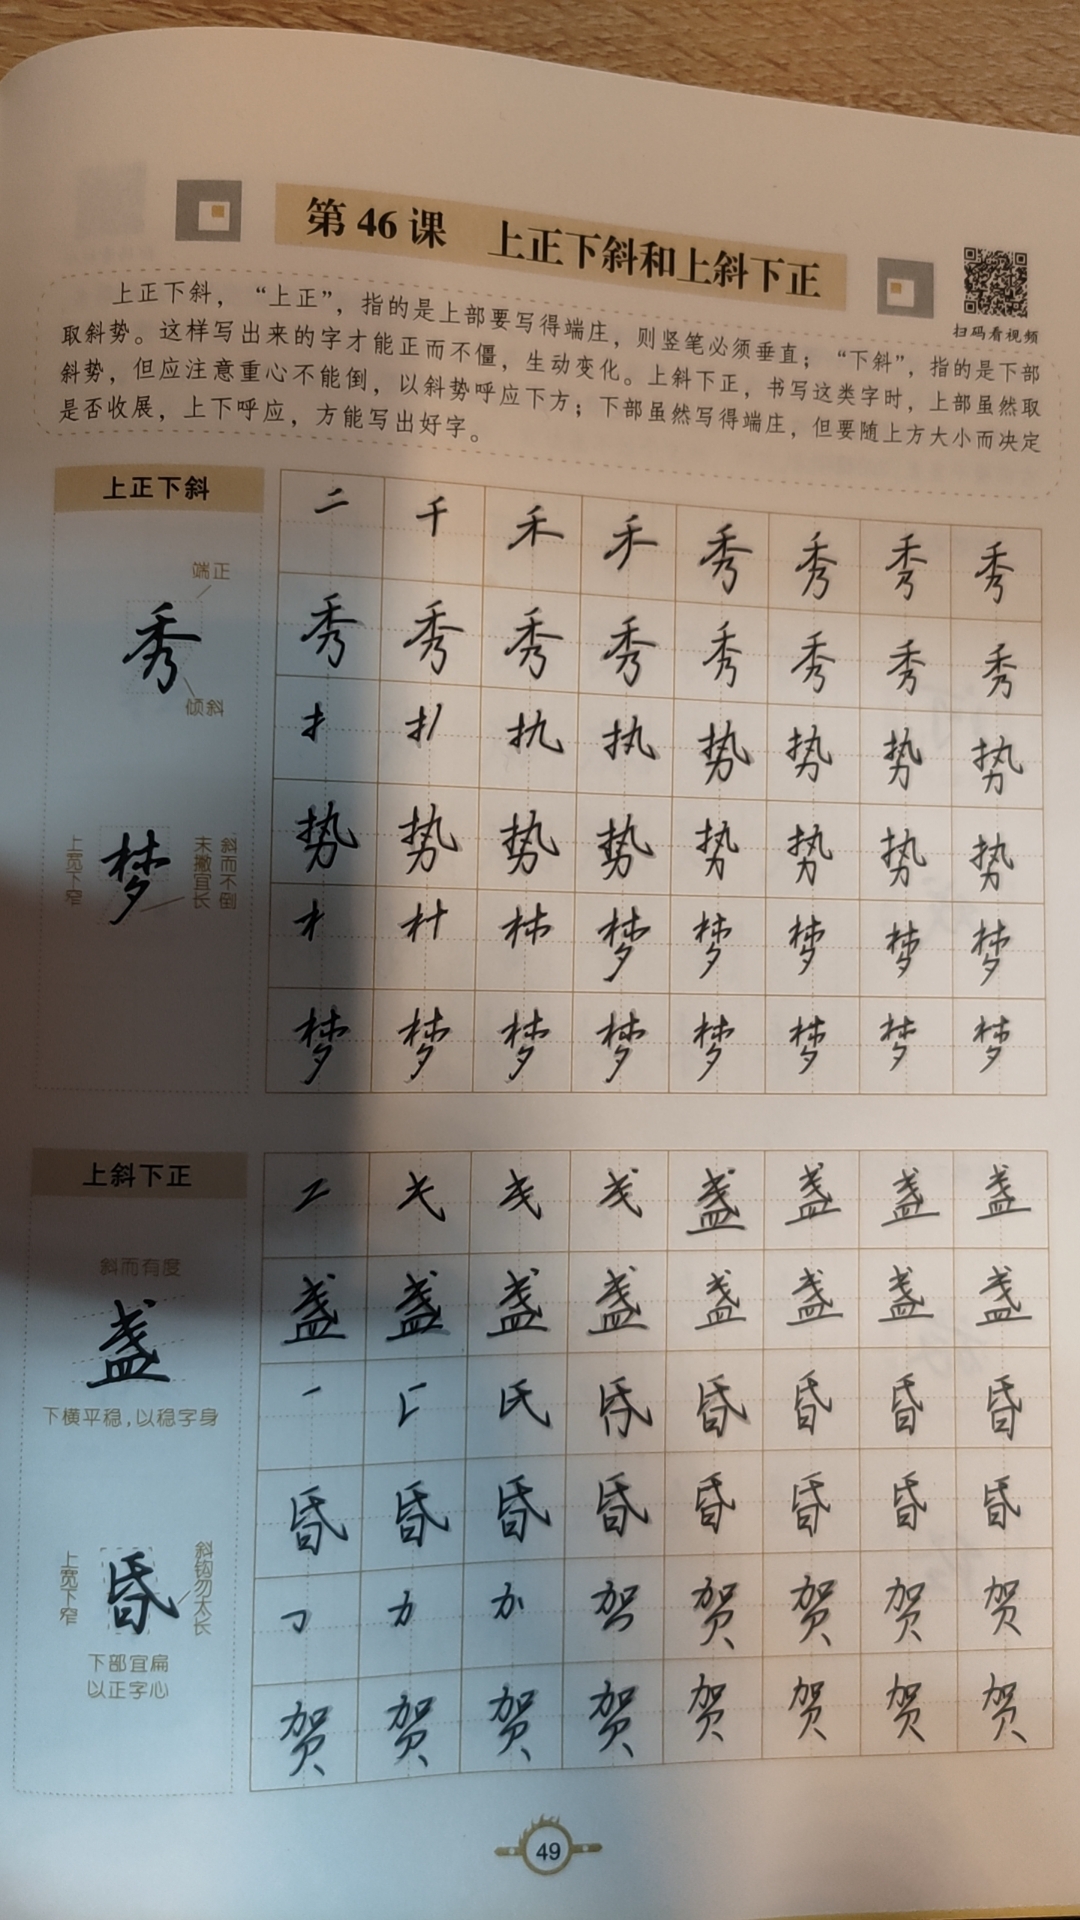 第46课 上正下斜和上斜下正
扫码看视频
上正下斜，“上正”，指的是上部要写得端庄，则竖笔必须垂直；“下斜”，指的是下部
取斜势。这样写出来的字才能正而不僵，生动变化。上斜下正，书写这类字时，上部虽然取
斜势，但应注意重心不能倒，以斜势呼应下方；下部虽然写得端庄，但要随上方大小而决定
是否收展，上下呼应，方能写出好字。
上正下斜
端正
秀
倾斜
上宽下窄
梦
末撇宜长
斜而不倒
二 千 禾 禾 秀 秀 秀 秀
秀 秀 秀 秀 秀 秀 秀 秀
扌 扎 执 执 势 势 势 势
势 势 势 势 势 势 势 势
木 材 林 梦 梦 梦 梦 梦
梦 梦 梦 梦 梦 梦 梦 梦
上斜下正
斜而有度
盏
下横平稳，以稳字身
上宽下窄
昏
斜钩勿太长
下部宜扁
以正字心
二 戋 戋 盏 盏 盏 盏
盏 盏 盏 盏 盏 盏 盏 盏
氏 昏 昏 昏 昏
昏 昏 昏 昏 昏 昏 昏 昏
力 加 贺 贺 贺 贺
贺 贺 贺 贺 贺 贺 贺 贺
49